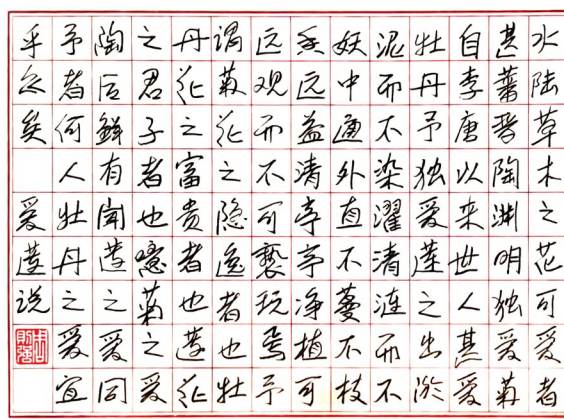 水陆草木之花可爱者
甚蕃晋陶渊明独爱菊
自李唐以来世人甚爱
牡丹予独爱莲之出淤
泥而不染濯清涟而不
妖中通外直不蔓不枝
香远益清亭亭净植可
远观而不可亵玩焉予
谓菊花之隐逸者也牡
丹花之富贵者也莲花
之君子者也噫菊之爱
陶后鲜有闻莲之爱同
予者何人牡丹之爱宜
乎众矣 爱莲说